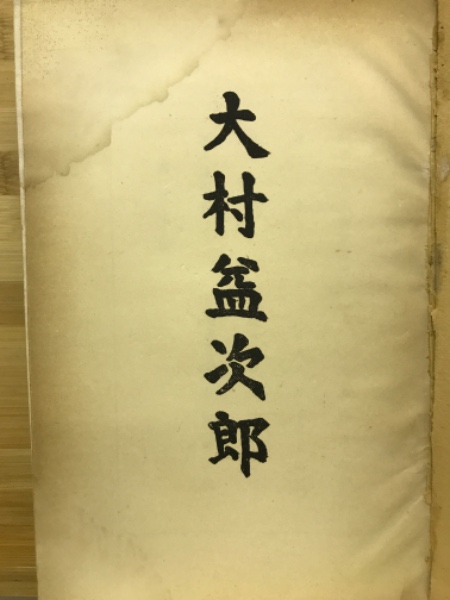 大村益次郎